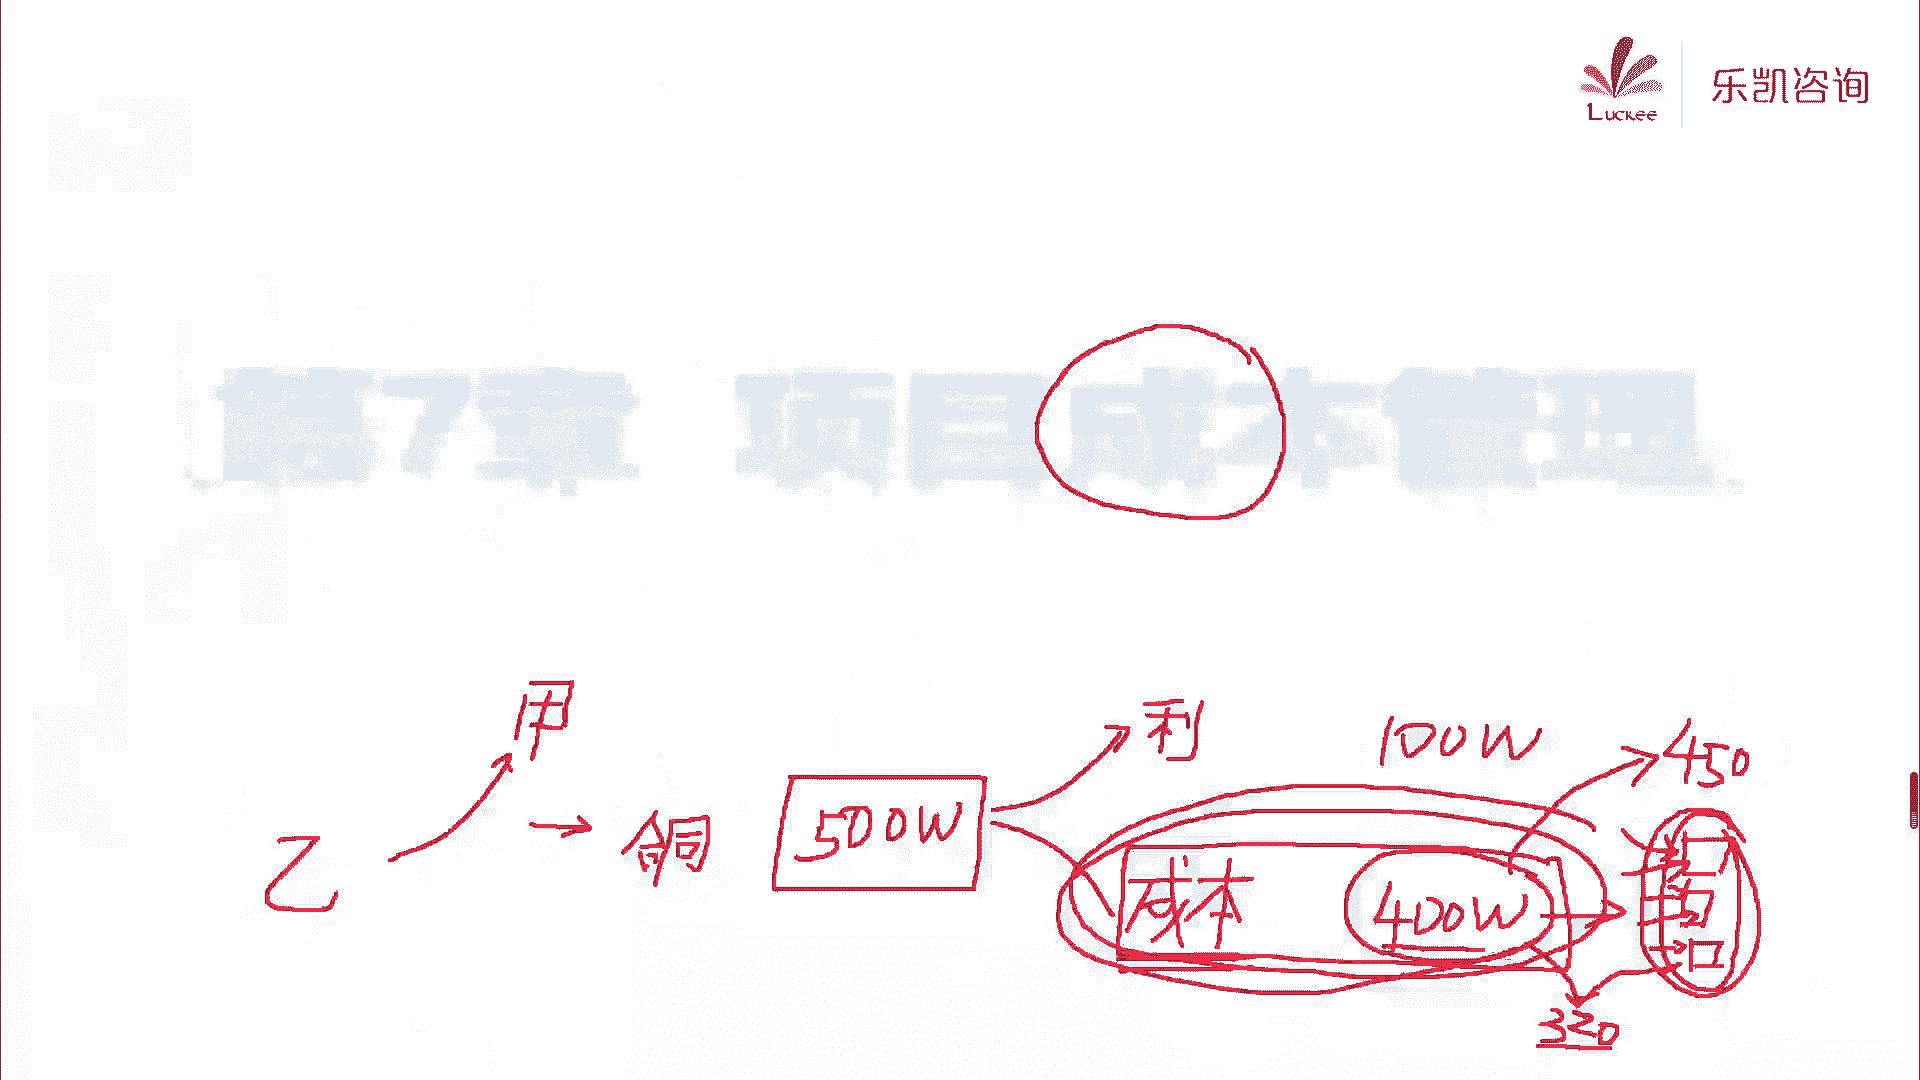 Luckee
乐凯咨询
第7章 项目成本管理
甲
乙
合同
500W
利
100W
450
成本
400W
320